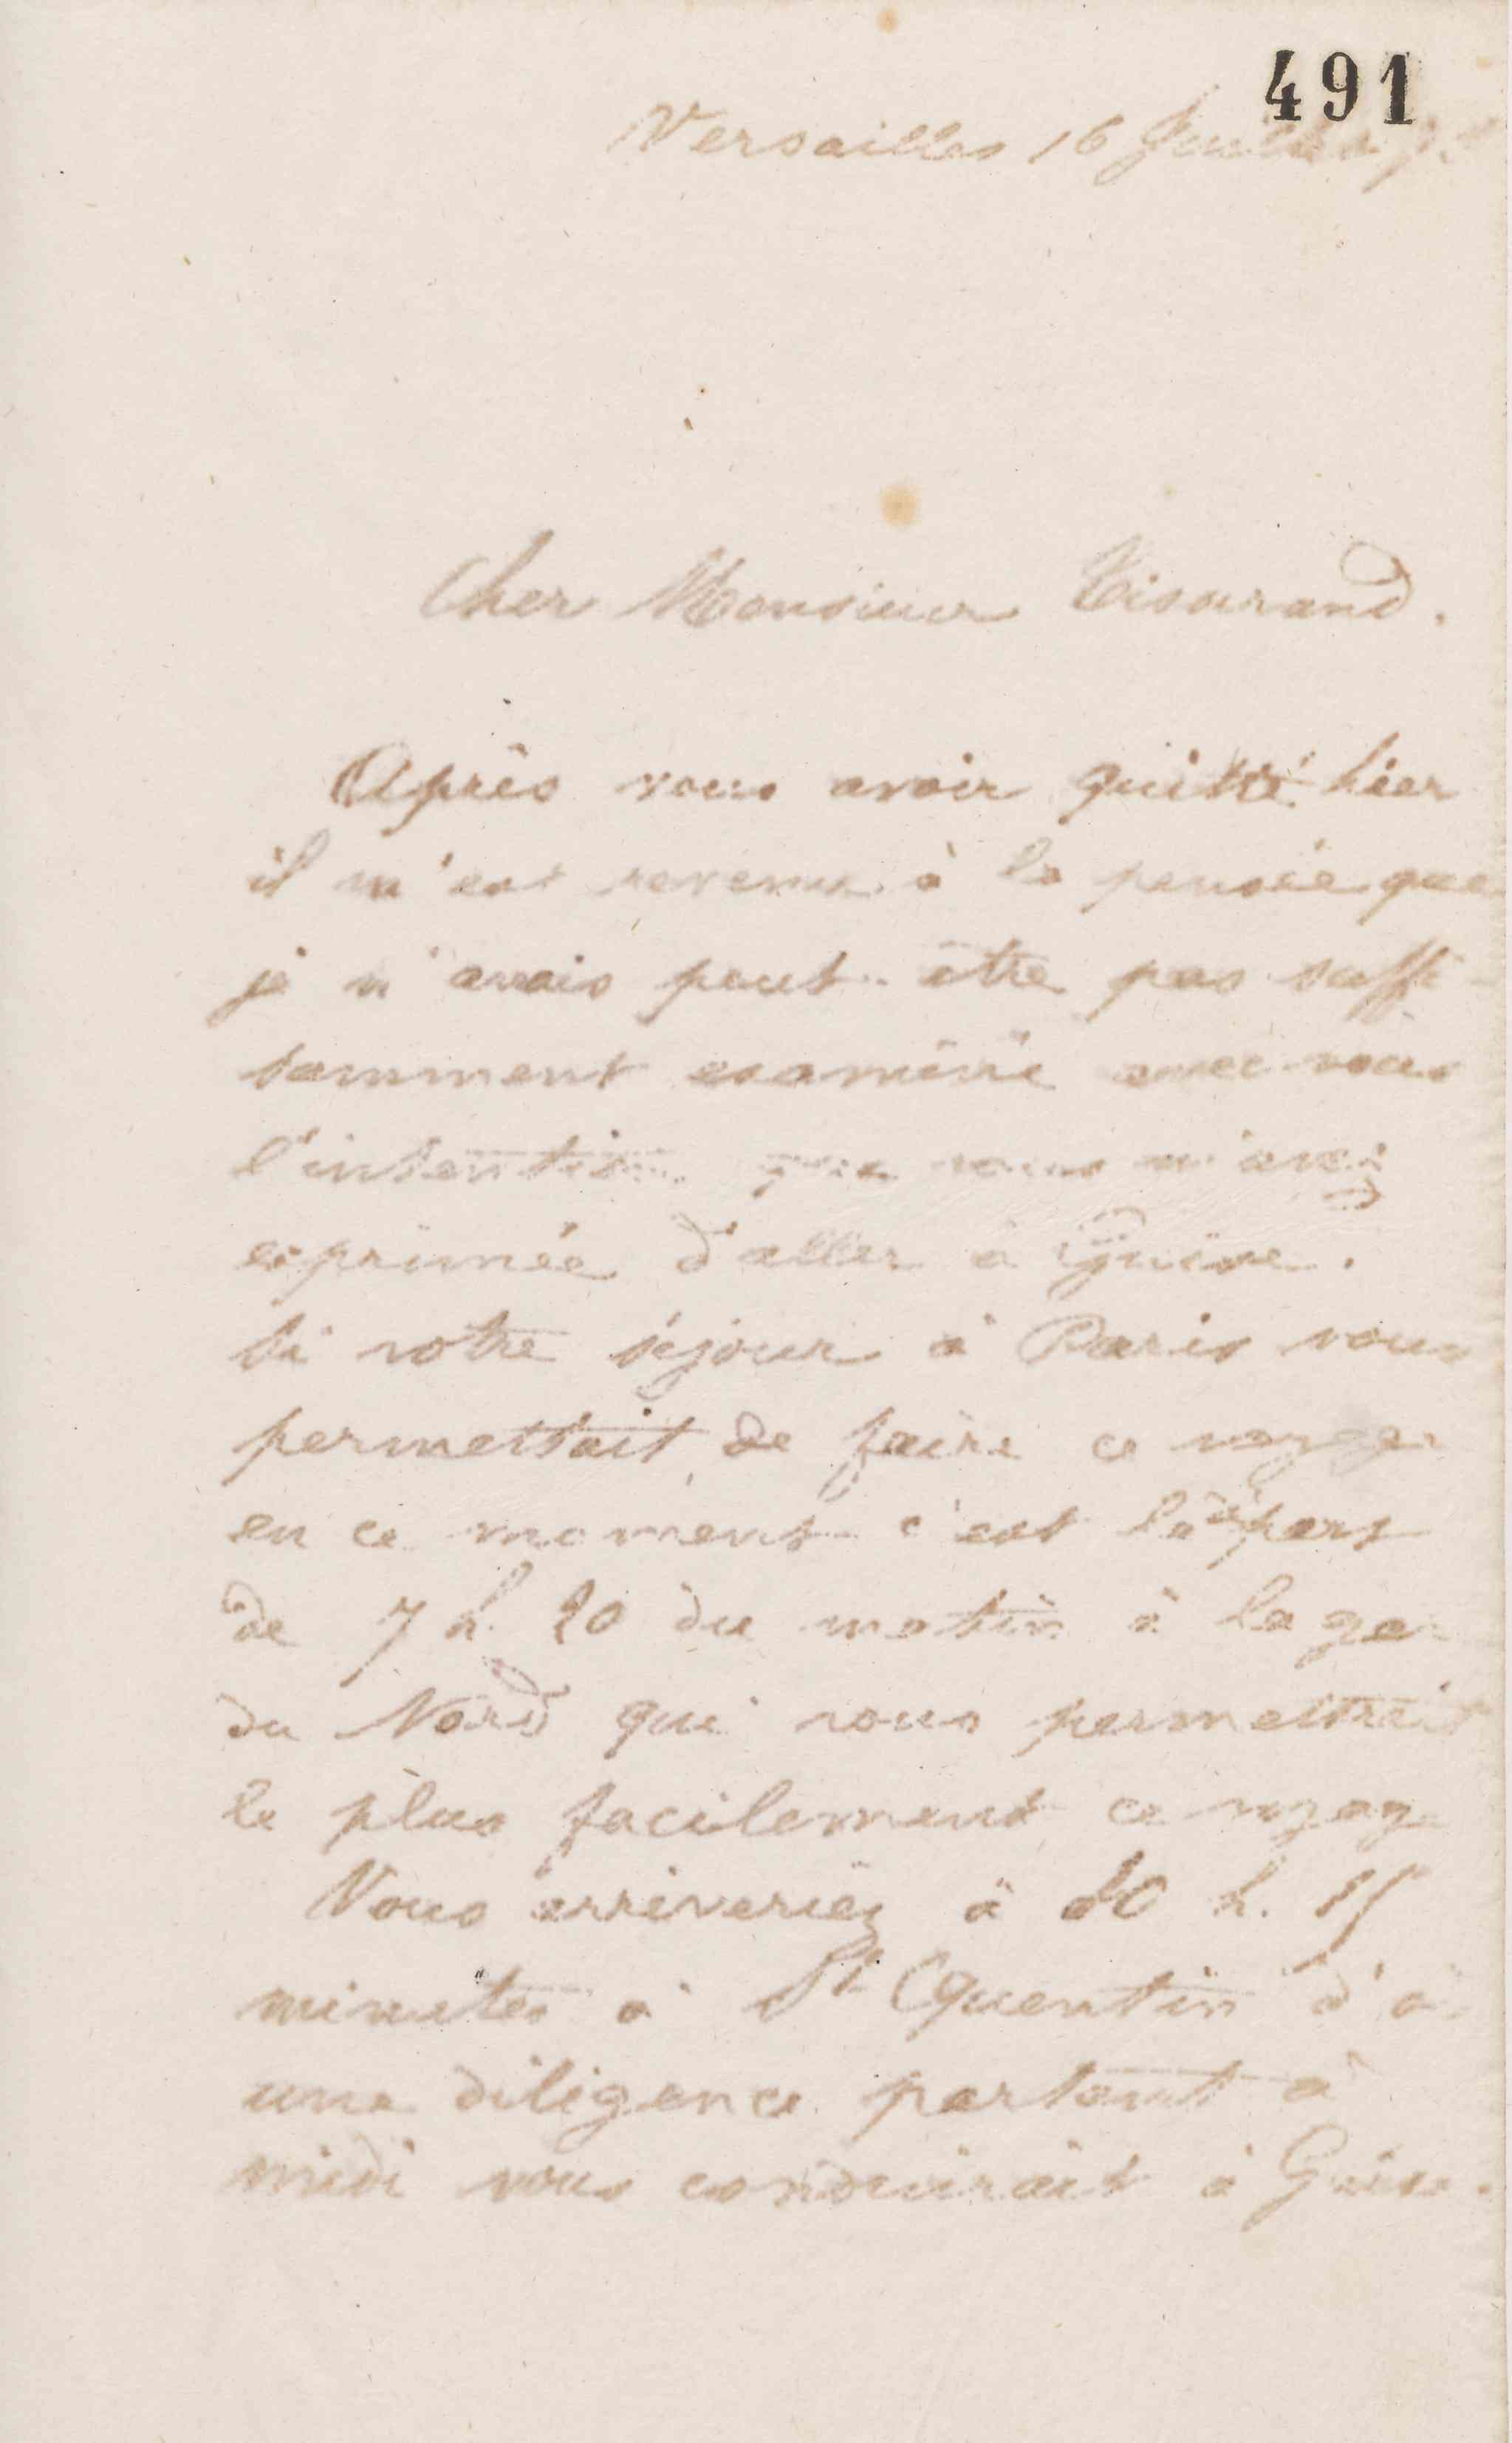 491
Versailles 16 Juillet
Cher Monsieur Tisserand.
Après vous avoir quitté hier
il m'est revenu à la pensée que
je n'avais peut-être pas suffi-
samment examiné avec vous
l'intention que vous m'avez
exprimée d'aller à Guise.
Si votre séjour à Paris vous
permettait de faire ce voyage
en ce moment c'est le départ
de 7 h. 20 du matin à la ga
du Nord qui vous permettrait
le plus facilement ce voyag
Vous arriveriez à 10 h. 15
minutes à St Quentin d'o
une diligence partant à
midi vous conduirait à Guise.